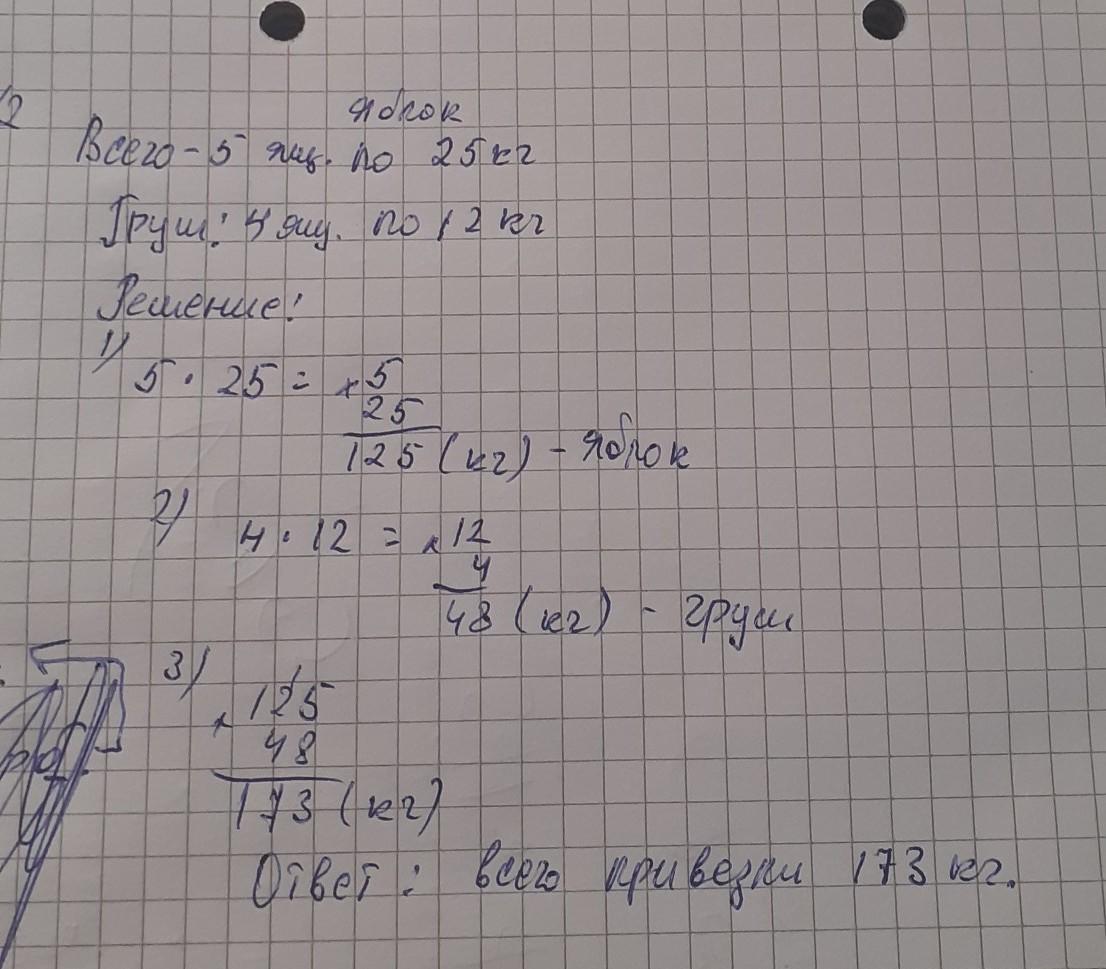 2
яблок
Всего - 5 ящ. по 25 кг
Груш: 4 ящ. по 12 кг
Решение:
1)
5 · 25 = × 5
25
125 (кг) - яблок
2)
4 · 12 = × 12
4
48 (кг) - груш
3)
× 125
48
173 (кг)
Ответ: всего привезли 173 кг.